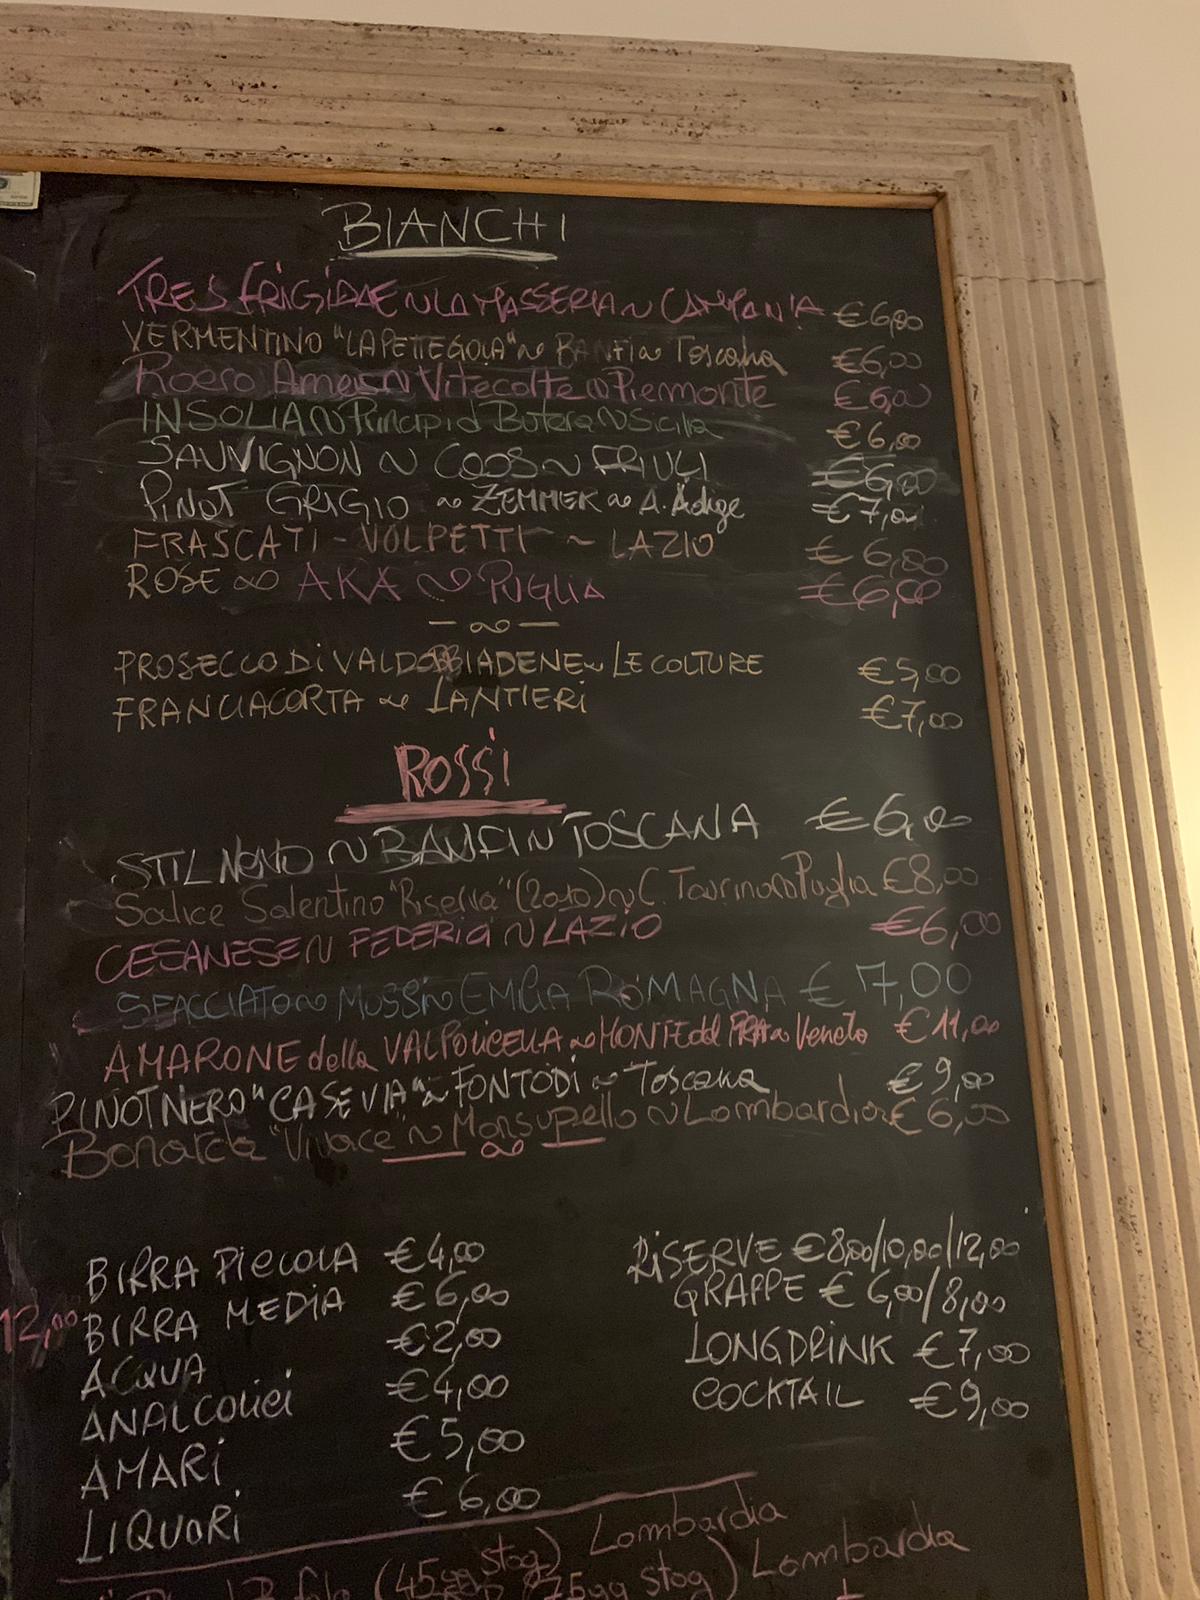 BIANCHI
TRES FRIGIDAE ~ LA MASSERIA ~ CAMPANIA €6,00
VERMENTINO "LA PETTEGOLA" ~ BANFI ~ Toscana €6,00
Roero Arneis ~ Vitecolte ~ Piemonte €6,00
INSOLIA ~ Principi d Butera ~ Sicilia €6,00
SAUVIGNON ~ COOS ~ FRIULI €6,00
PINOT GRIGIO ~ ZEMMER ~ A. Adige €7,00
FRASCATI - VOLPETTI ~ LAZIO €6,00
ROSE ~ AKA ~ PUGLIA €6,00
— ∞ —
PROSECCO Di VALDOBBIADENE ~ LE COLTURE €5,00
FRANCIACORTA ~ LANTIERI €7,00
ROSSI
STIL NOVO ~ BANFI ~ TOSCANA €6,00
Salice Salentino "Riserva" (2010) ~ C. Taurino ~ Puglia €8,00
CESANESE ~ FEDERICI ~ LAZIO €6,00
SFACCIATO ~ MUSSI ~ EMILIA ROMAGNA €7,00
AMARONE della VALPOLICELLA ~ MONTE del FRA ~ Veneto €11,00
PINOT NERO "CASE VIA" ~ FONTODI ~ Toscana €9,00
Bonarda "Vivace ~ Monsupello ~ Lombardia €6,00
— ∞ —
BIRRA PICCOLA €4,00
12,00
BIRRA MEDIA €6,00
ACQUA €2,00
ANALCOLICI €4,00
AMARI €5,00
LIQUORI €6,00
RISERVE €8,00/10,00/12,00
GRAPPE €6,00/8,00
LONGDRINK €7,00
COCKTAIL €9,00
(45gg stag) Lombardia
(75gg stag) Lombardia